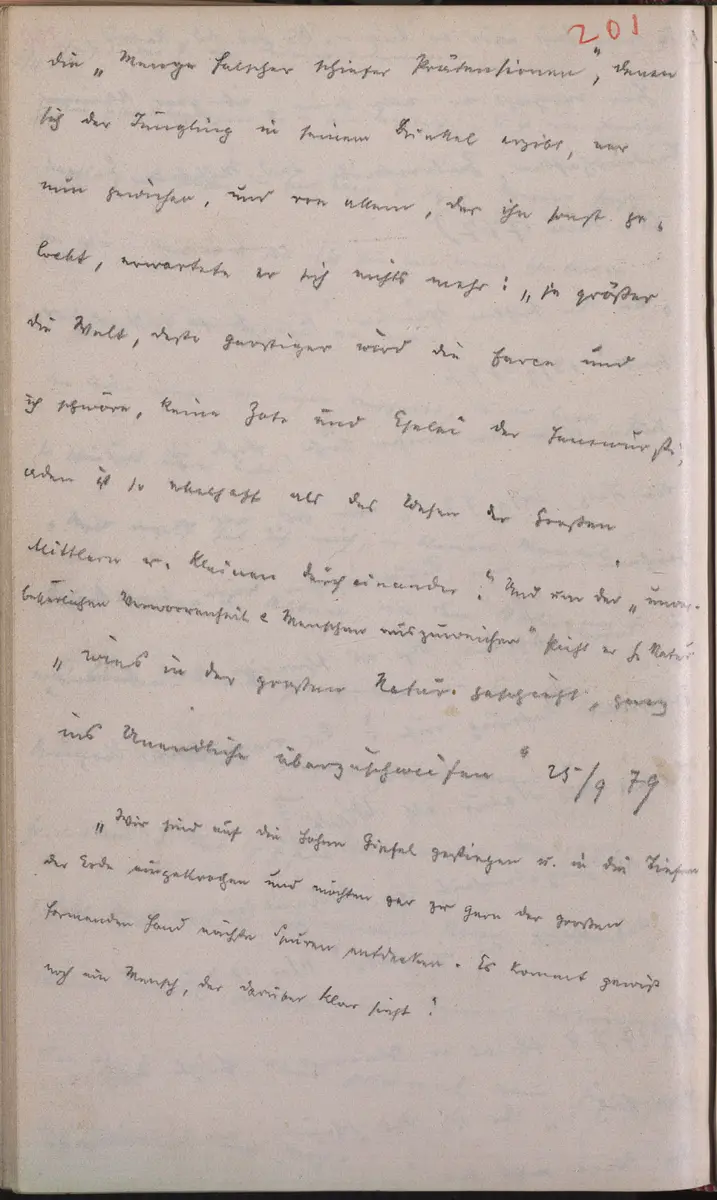 201
die „Menge falscher schiefer Prätensionen“, denen
sich der Jüngling in seinem Dünkel ergibt, war
nun gewichen, und von allem, das ihn sonst ge-
lockt, erwartete er sich nichts mehr: „je größer
die Welt, desto garstiger wird die Farce und
ich schwöre, keine Zote und Eselei der Hanswursti-
aden ist so ekelhaft als das Wesen der Großen
Mittlern u. Kleinen durch einander!“ Und von der „unver-
besserlichen Verworrenheit d Menschen auszuweichen“ sucht er s. Natur
„wies in der großen Natur geschieht, ganz
ins Unendliche überzuschweifen“ 25/9 79
„Wir sind auf die hohen Gipfel gestiegen u. in die Tiefen
der Erde eingekrochen und möchten gar zu gern der großen
formenden Hand nächste Spuren entdecken. Es kommt gewiß
noch ein Mensch, der darüber klar sieht!